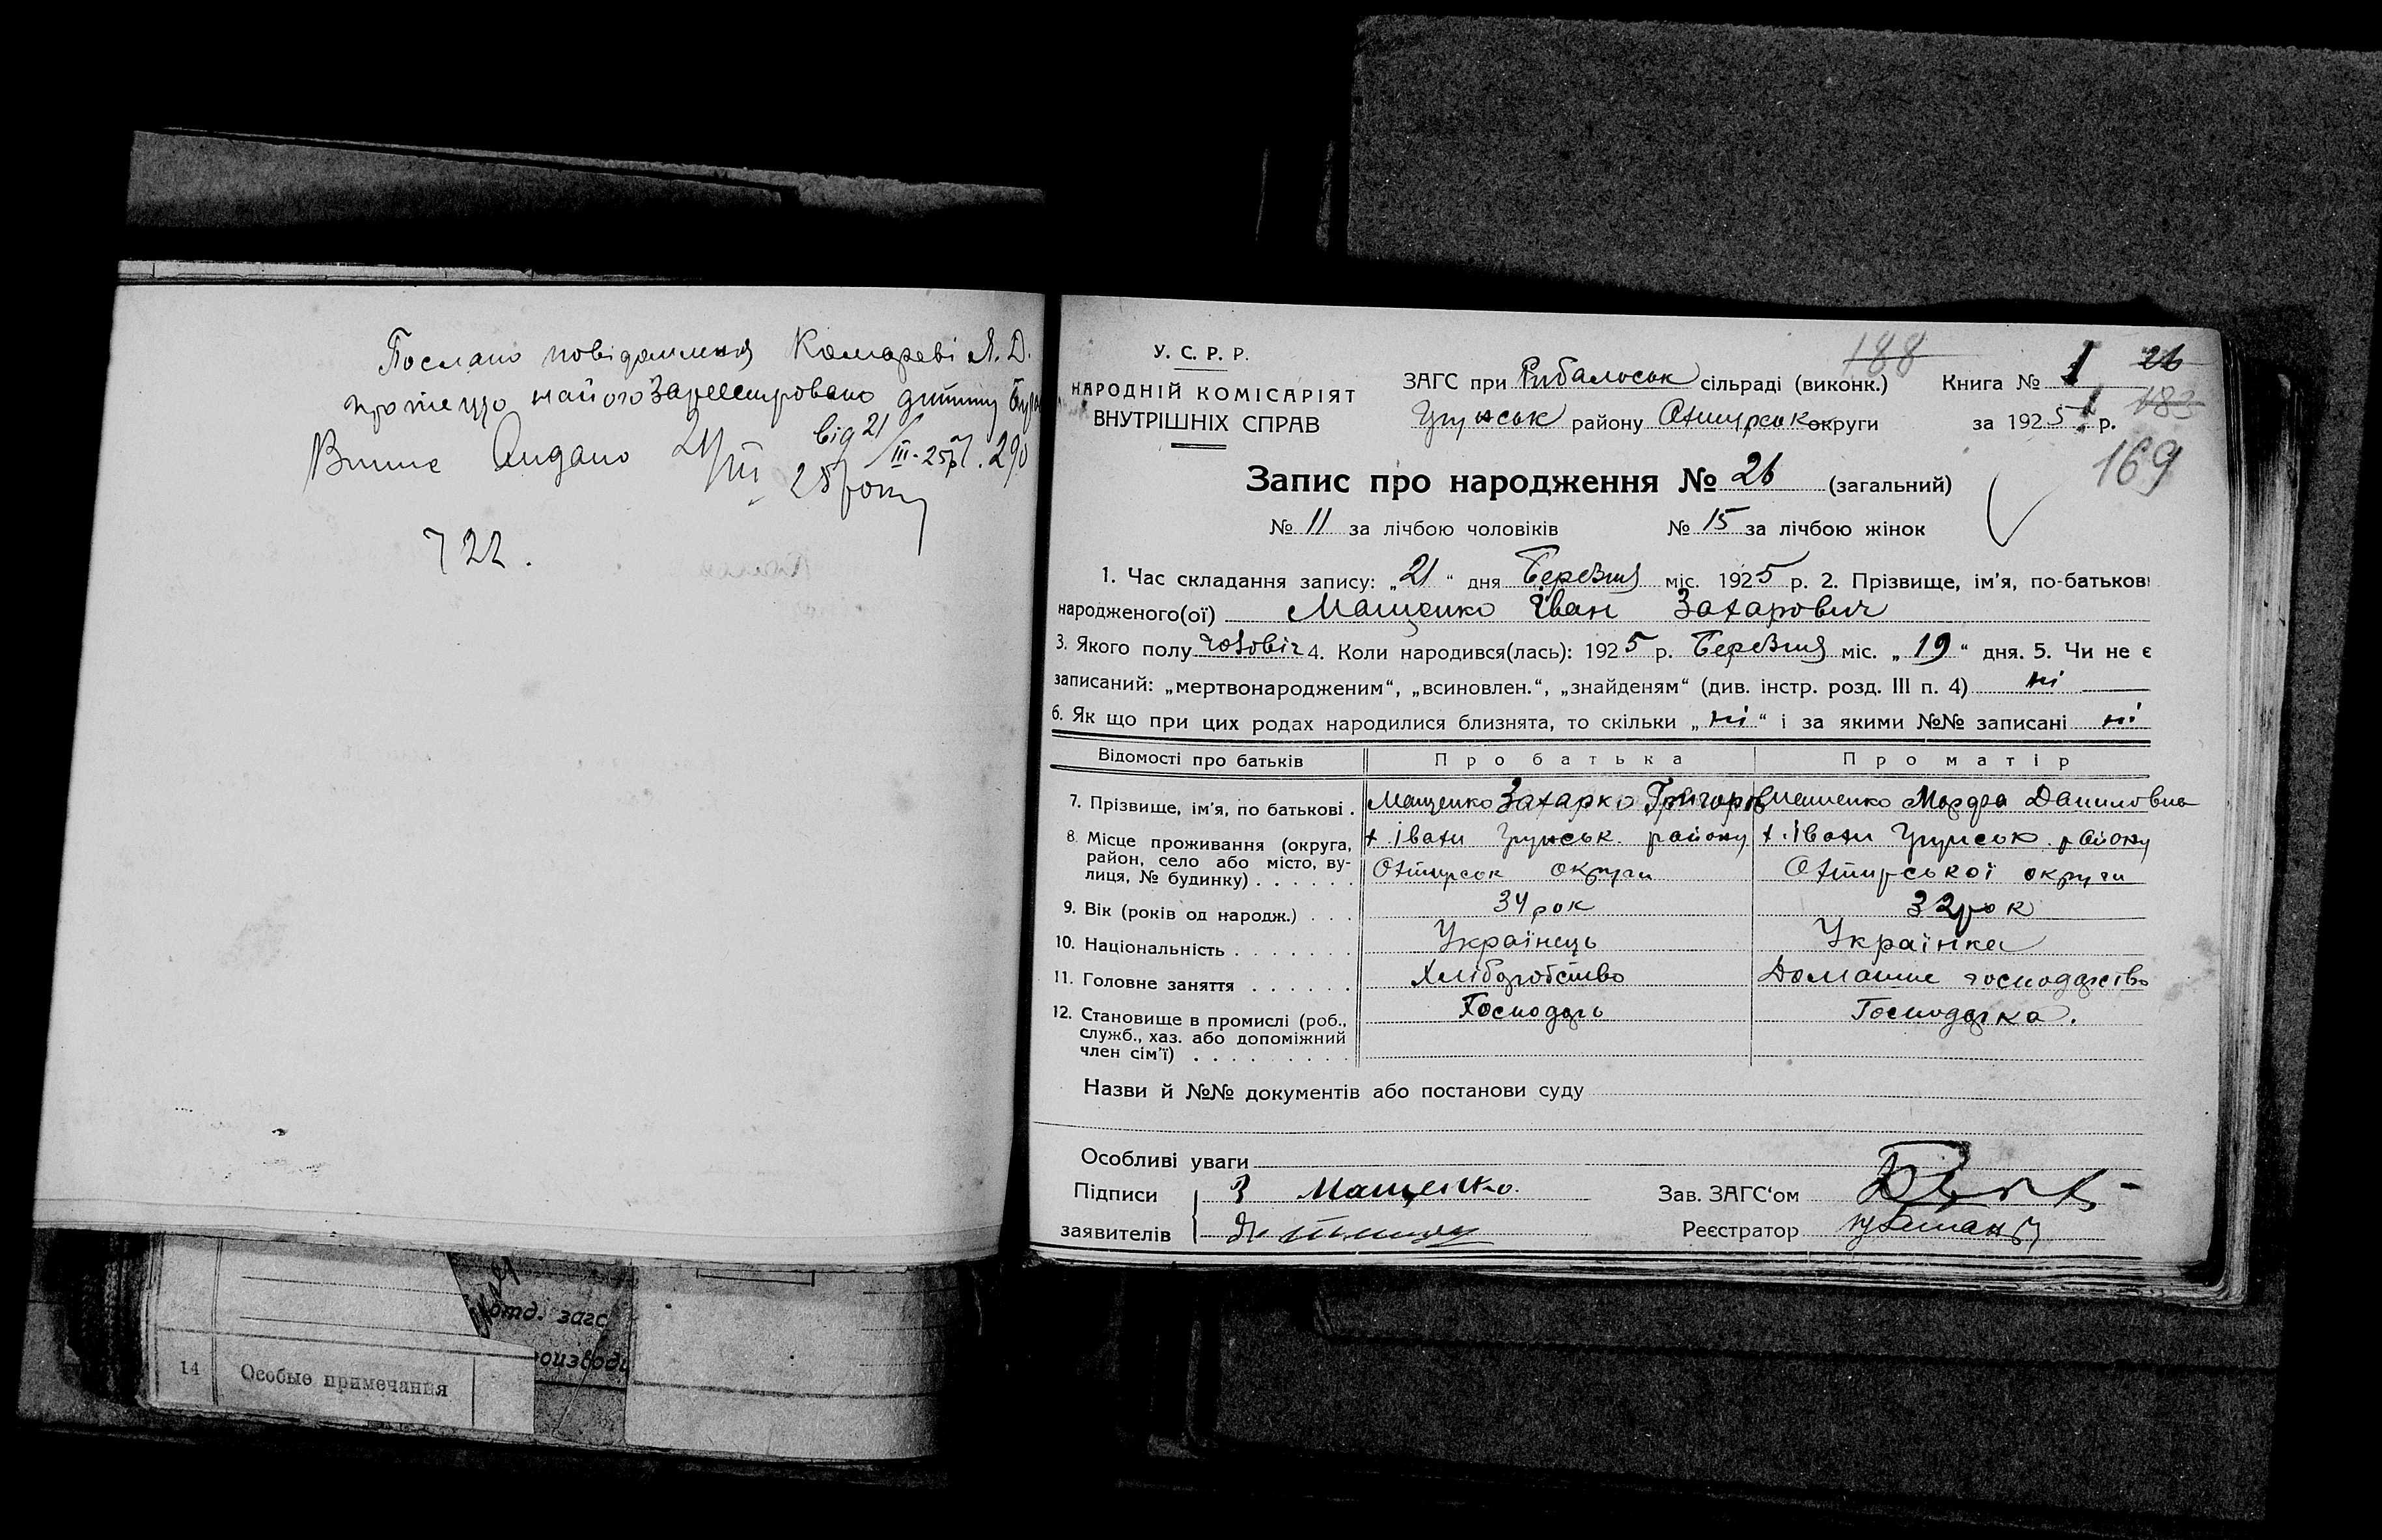 Послано повідомлення Комареві Я. Д.
про те що на його зареестровано дитину
від 21/III-25р. 290
Випис видано 21/III 25 року
722.
У. С. Р. Р.
НАРОДНІЙ КОМІСАРІЯТ
ВНУТРІШНІХ СПРАВ
188
ЗАГС при Рибальськ сільраді (виконк.) Книга № 1 26
Грунськ району Охтирськ округи за 1925 р. 183
169
Запис про народження № 26 (загальний)
№ 11 за лічбою чоловіків № 15 за лічбою жінок
1. Час складання запису: „21“ дня Березня міс. 1925 р. 2. Прізвище, ім'я, по-батькові
народженого(ої) Мащенко Іван Захарович
3. Якого полу чоловіч 4. Коли народився(лась): 1925 р. Березня міс. „19“ дня. 5. Чи не є
записаний: „мертвонародженим“, „всиновлен.“, „знайденям“ (див. інстр. розд. III п. 4) ні
6. Як що при цих родах народилися близнята, то скільки „ні“ і за якими №№ записані ні
Відомості про батьків Про батька Про матір
7. Прізвище, ім'я, по батькові . Мащенко Захарко Григоров Мащенко Марфа Даниловна
8. Місце проживання (округа, район, село або місто, ву-лиця, № будинку) . . . . . . х. Івахи Грунськ. району х. Івахи Грунськ. району
Охтирськ округи Охтирської округи
9. Вік (років од народж.) . . . 34 рок 32 рок
10. Національність . . . . . . . Українець Українка
11. Головне заняття . . . . . . Хліборобство Домашне господарство
12. Становище в промислі (роб., Господарь Господарка.
служб., хаз. або допоміжний
член сім'ї) . . . . . . . . .
Назви й №№ документів або постанови суду
Особливі уваги
Підписи З Мащенко. Зав. ЗАГС'ом
заявителів Реєстратор
отд. загс
14 Особые примечания